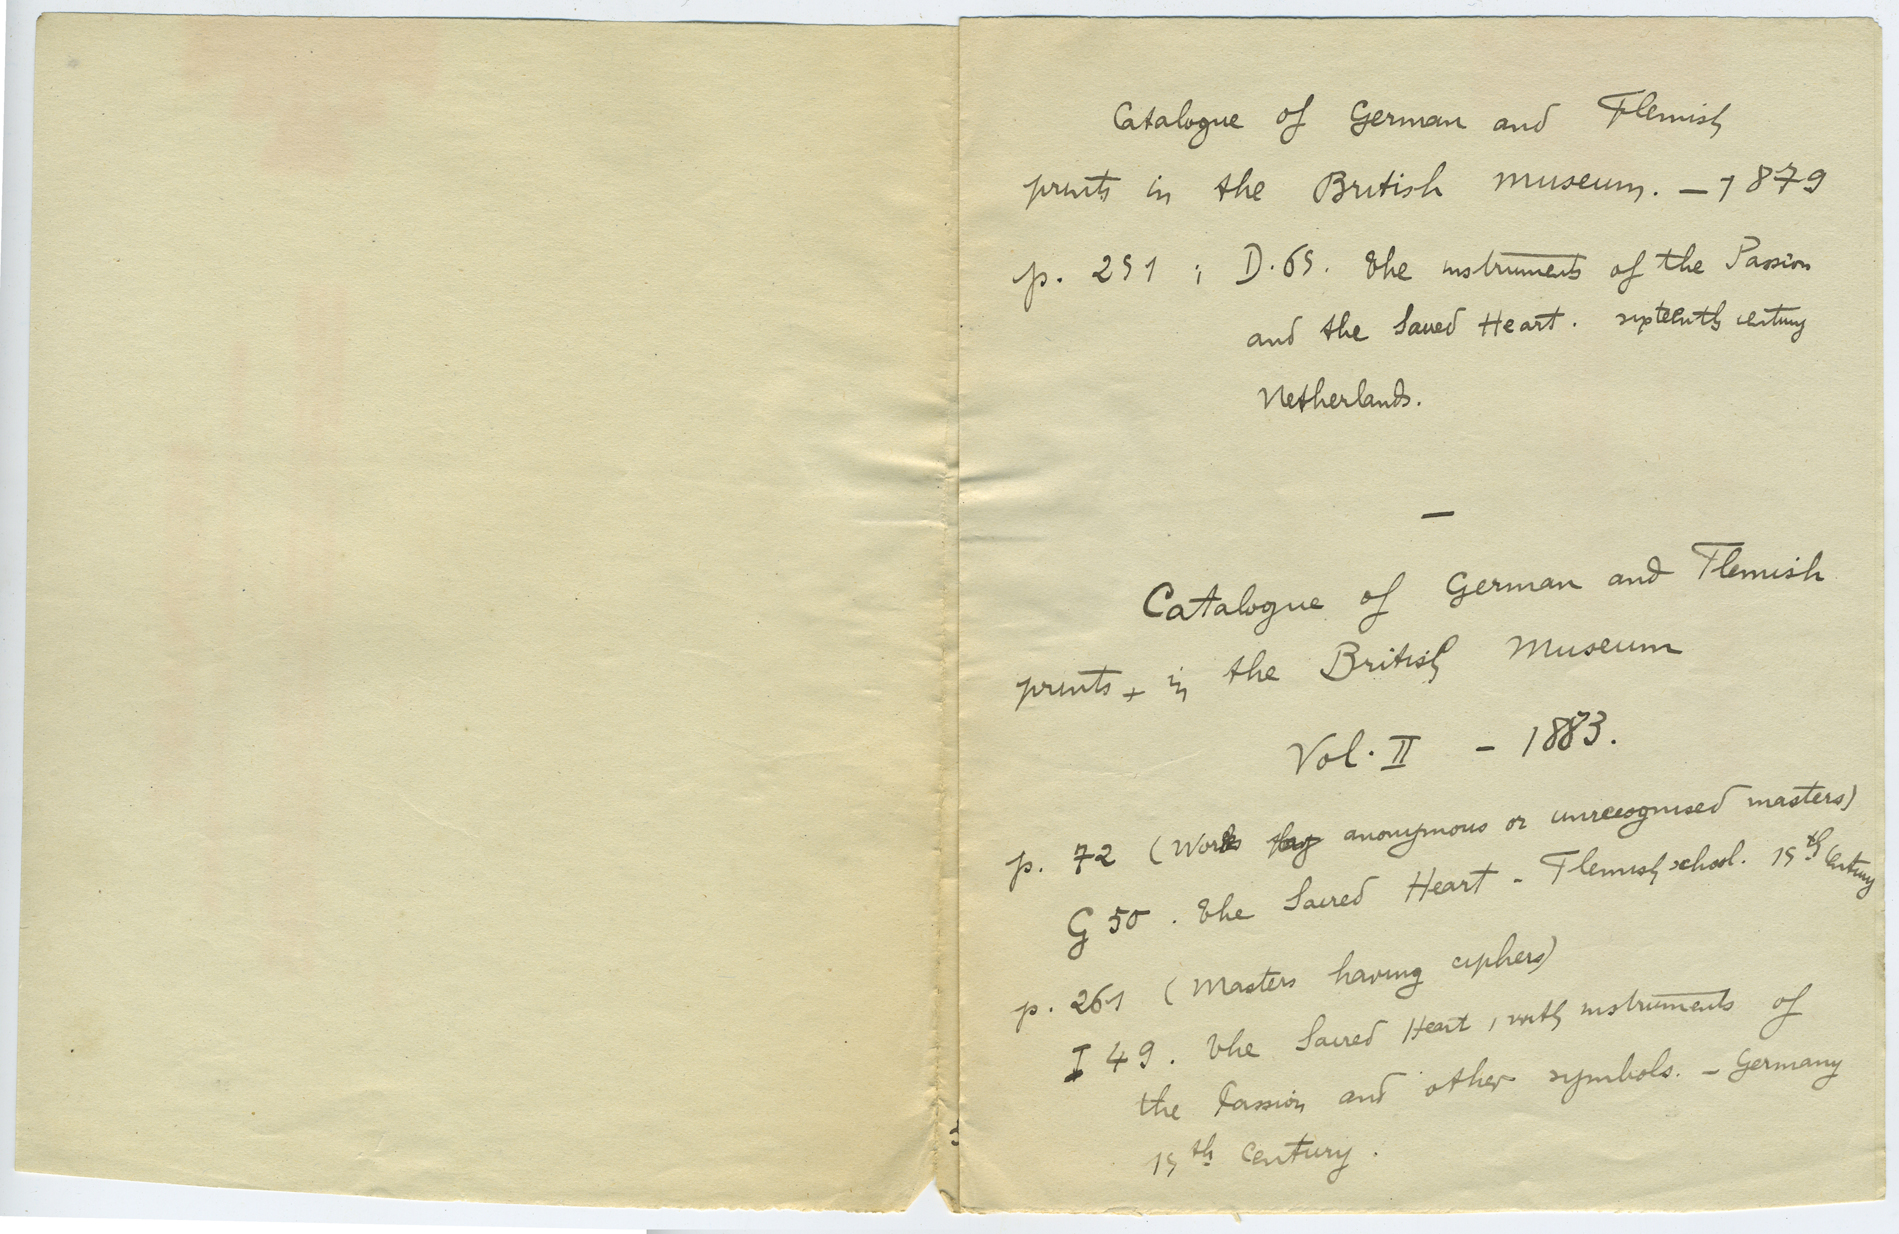 Catalogue of German and Flemish
prints in the British Museum. — 1879
p. 251 ; D. 65. The instruments of the Passion
and the Sacred Heart. sixteenth century
Netherlands.
—
Catalogue of German and Flemish
prints + in the British Museum
Vol. II — 1883.
p. 72 (Works anonymous or unrecognised masters)
G 50. The Sacred Heart - Flemish school. 15th Century
p. 261 (Masters having ciphers)
I 49. The Sacred Heart, with instruments of
the Passion and other symbols. — Germany
15th Century.